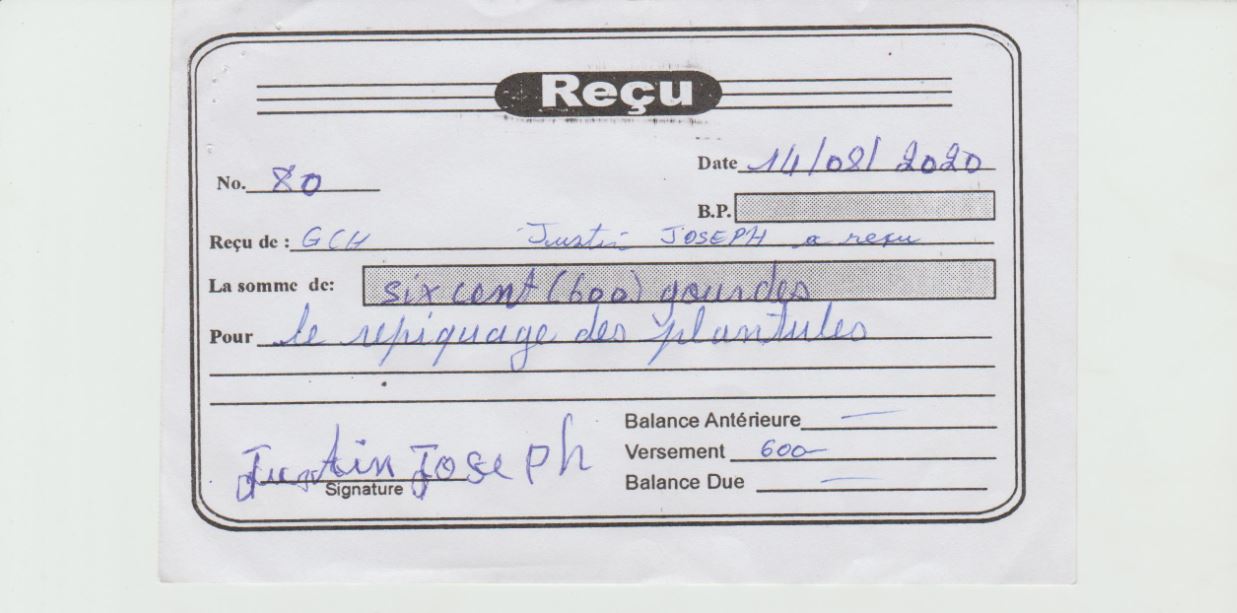 Reçu
Date 14/08/2020
No. 80
B.P.
Reçu de : GCH Justin JOSEPH a reçu
La somme de: six cent (600) gourdes
Pour le repiquage des plantules
Balance Antérieure —
Versement 600-
Balance Due —
Justin Joseph
Signature